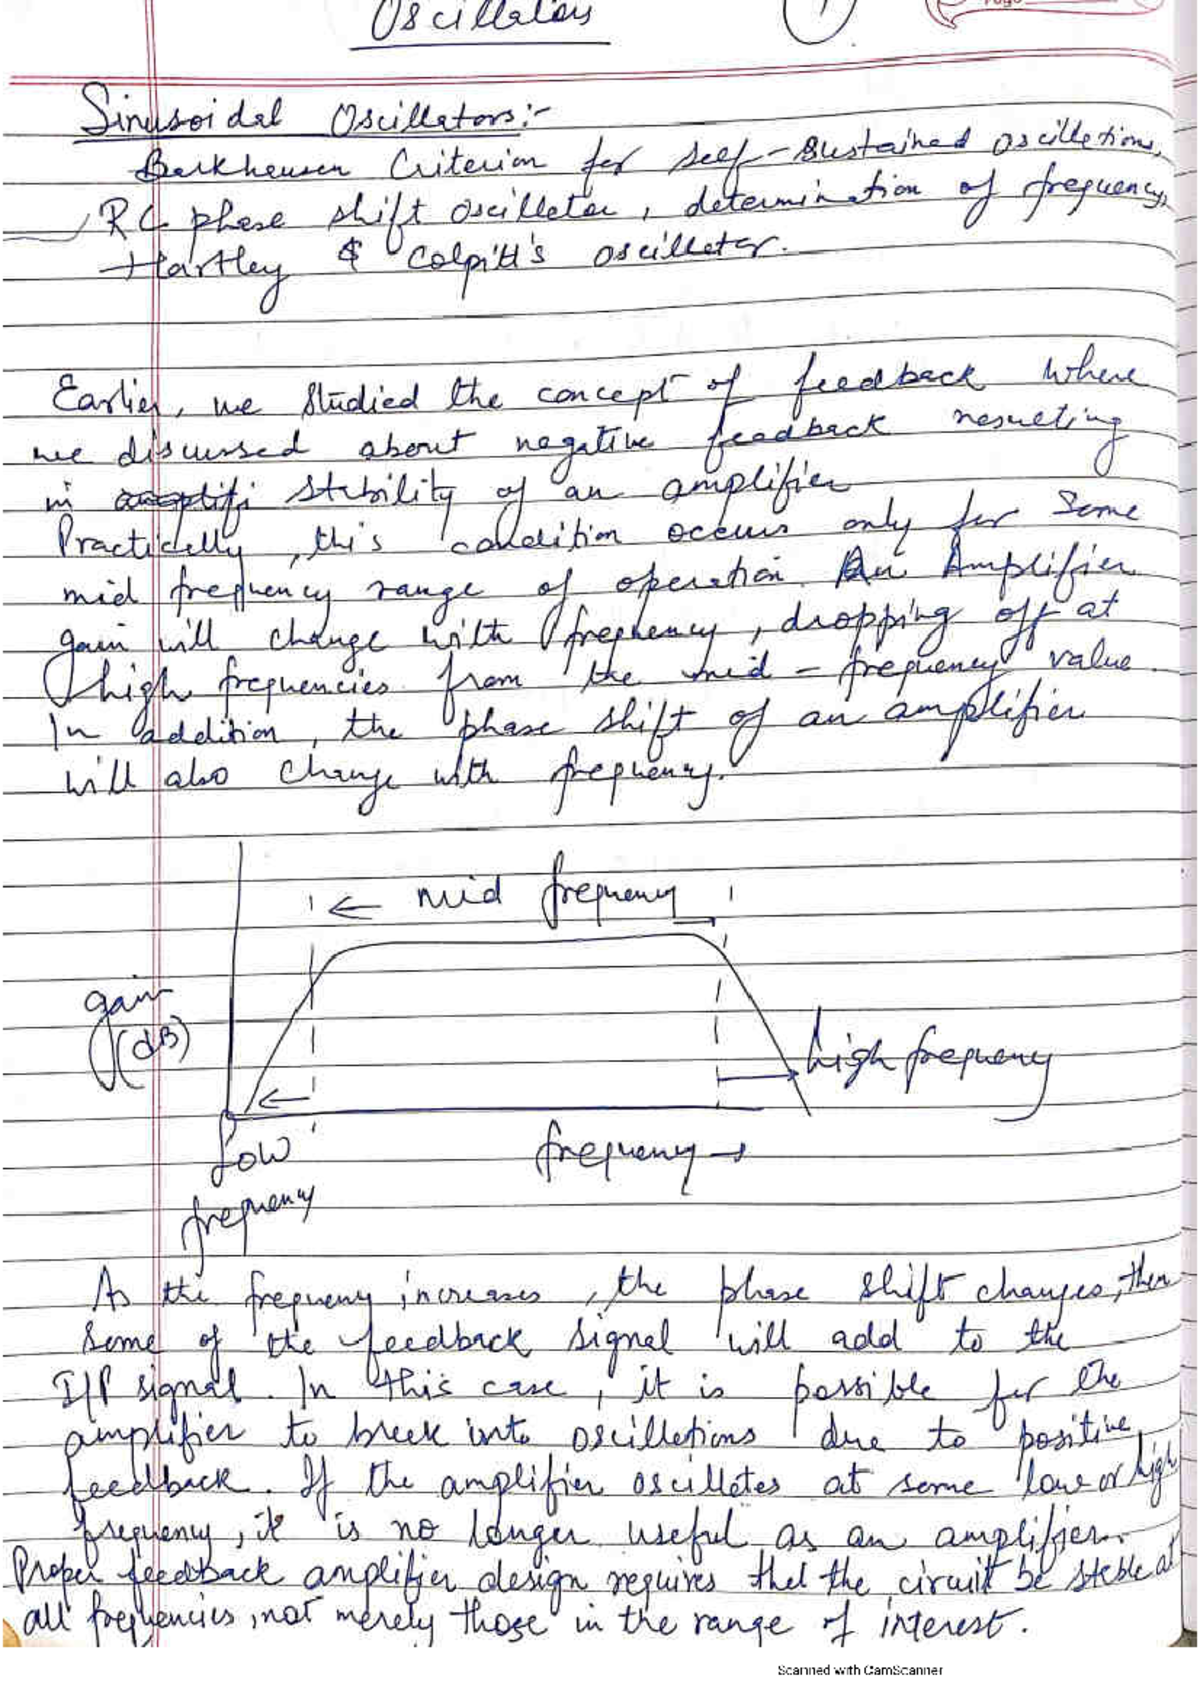 Oscillators
1
Page
Sinusoidal Oscillators:-
Barkhausen Criterion for self-sustained oscillations,
RC phase shift oscillator, determination of frequency,
Hartley & Colpitt's oscillator.
Earlier, we studied the concept of feedback where
we discussed about negative feedback resulting
in amplifi stability of an amplifier
Practically, this condition occurs only for some
mid frequency range of operation. An Amplifier
gain will change with frequency, dropping off at
high frequencies from the mid-frequency value.
In addition, the phase shift of an amplifier
will also change with frequency.
← mid frequency
gain
(dB)
high frequency
low
frequency →
frequency
As the frequency increases, the phase shift changes, then
some of the feedback signal will add to the
I/P signal. In this case, it is possible for the
amplifier to break into oscillations due to positive
feedback. If the amplifier oscillates at some low or high
frequency, it is no longer useful as an amplifier.
Proper feedback amplifier design requires that the circuit be stable at
all frequencies, not merely those in the range of interest.
Scanned with CamScanner